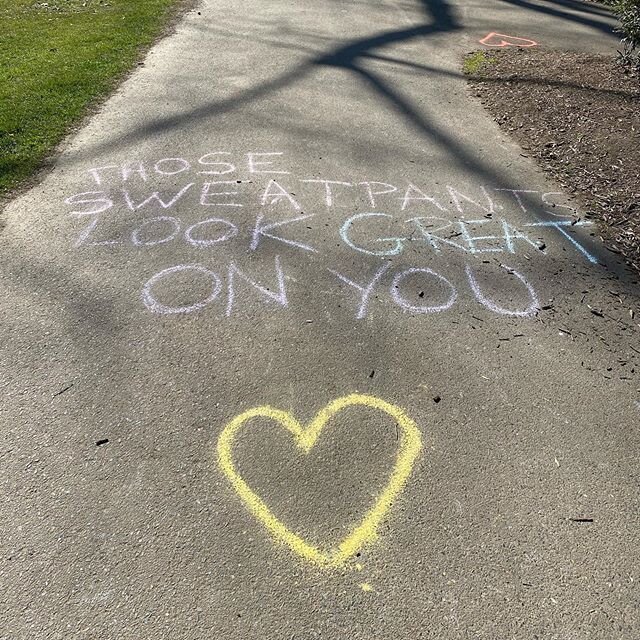 THOSE
SWEATPANTS
LOOK GREAT
ON YOU